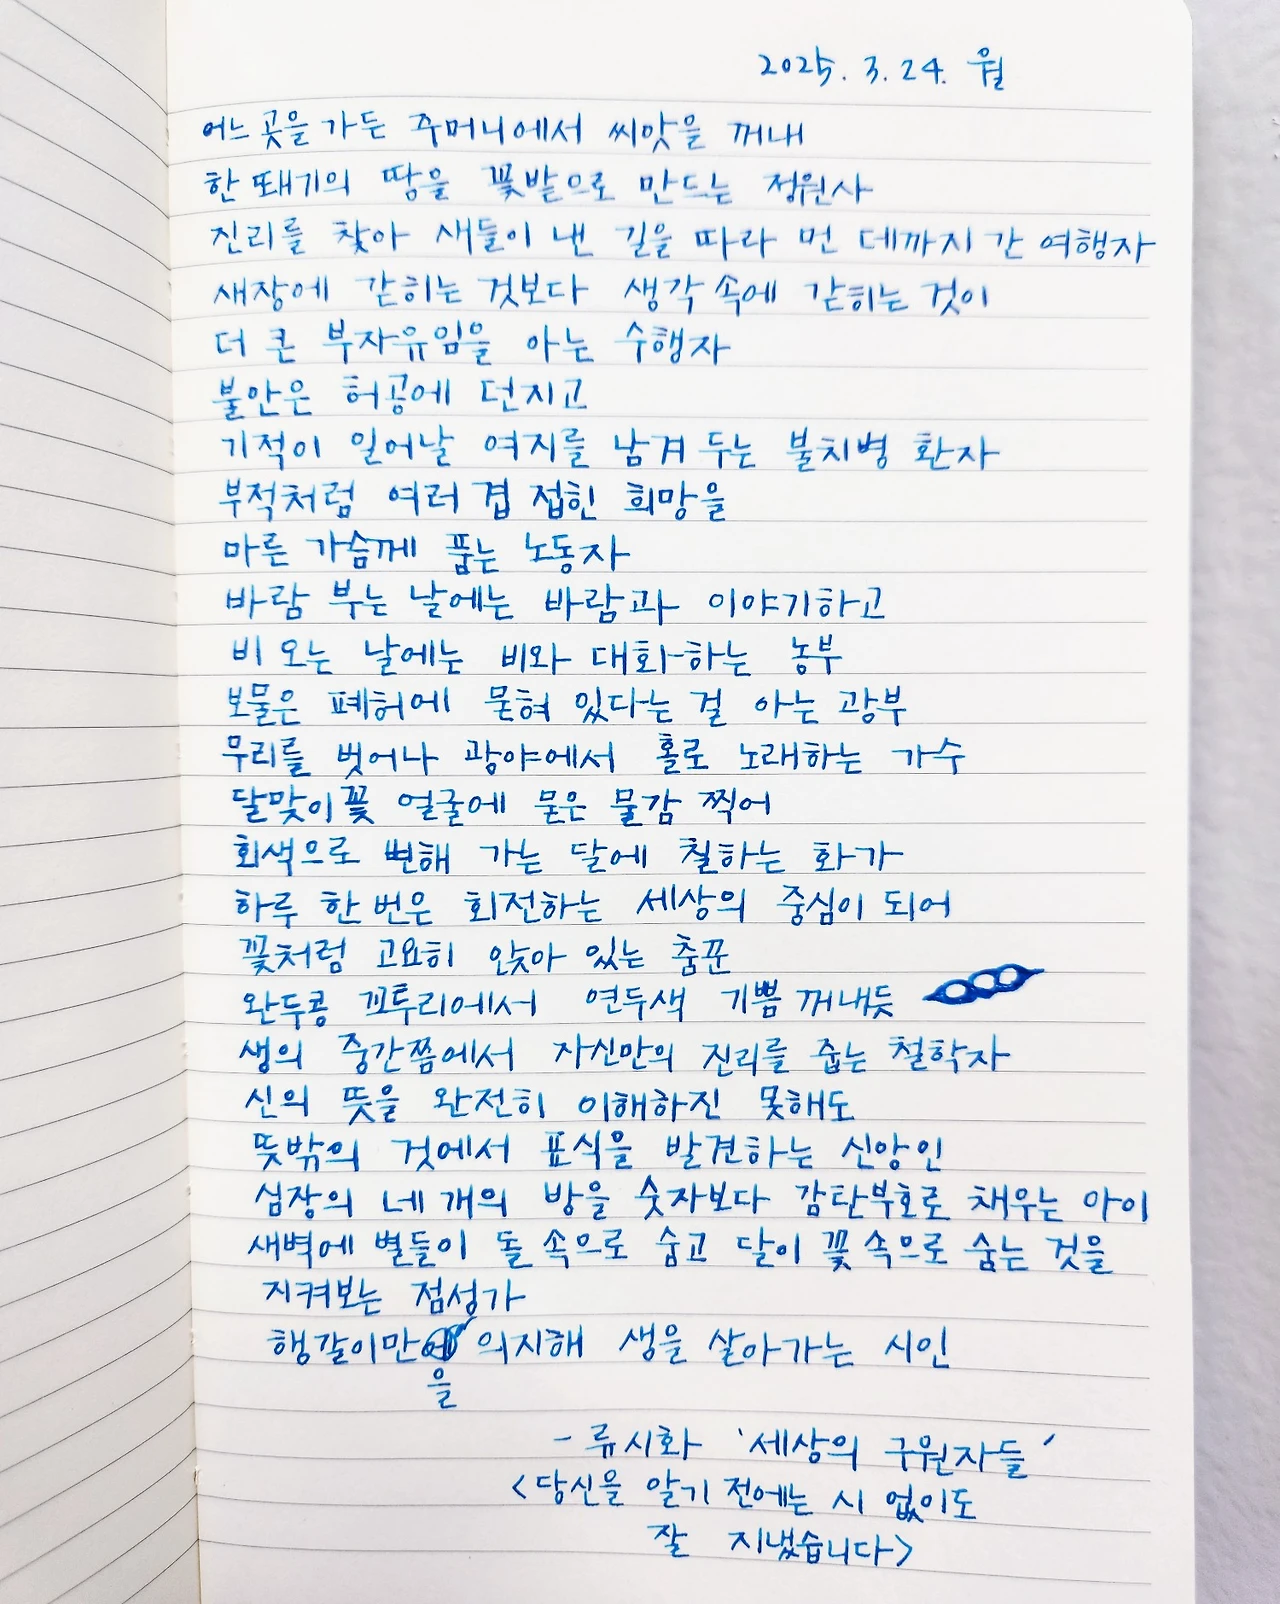 2025. 3. 24. 월
어느 곳을 가든 주머니에서 씨앗을 꺼내
한 뙈기의 땅을 꽃밭으로 만드는 정원사
진리를 찾아 새들이 낸 길을 따라 먼 데까지 간 여행자
새장에 갇히는 것보다 생각 속에 갇히는 것이
더 큰 부자유임을 아는 수행자
불안은 허공에 던지고
기적이 일어날 여지를 남겨 두는 불치병 환자
부적처럼 여러 겹 접힌 희망을
마른 가슴께 품는 노동자
바람 부는 날에는 바람과 이야기하고
비 오는 날에는 비와 대화하는 농부
보물은 폐허에 묻혀 있다는 걸 아는 광부
무리를 벗어나 광야에서 홀로 노래하는 가수
달맞이꽃 얼굴에 묻은 물감 찍어
회색으로 변해 가는 달에 칠하는 화가
하루 한 번은 회전하는 세상의 중심이 되어
꽃처럼 고요히 앉아 있는 춤꾼
완두콩 꼬투리에서 연두색 기쁨 꺼내듯
생의 중간쯤에서 자신만의 진리를 줍는 철학자
신의 뜻을 완전히 이해하진 못해도
뜻밖의 것에서 표식을 발견하는 신앙인
심장의 네 개의 방을 숫자보다 감탄부호로 채우는 아이
새벽에 별들이 돌 속으로 숨고 달이 꽃 속으로 숨는 것을
지켜보는 점성가
행갈이만 의지해 생을 살아가는 시인
을
- 류시화 '세상의 구원자들'
<당신을 알기 전에는 시 없이도
잘 지냈습니다>